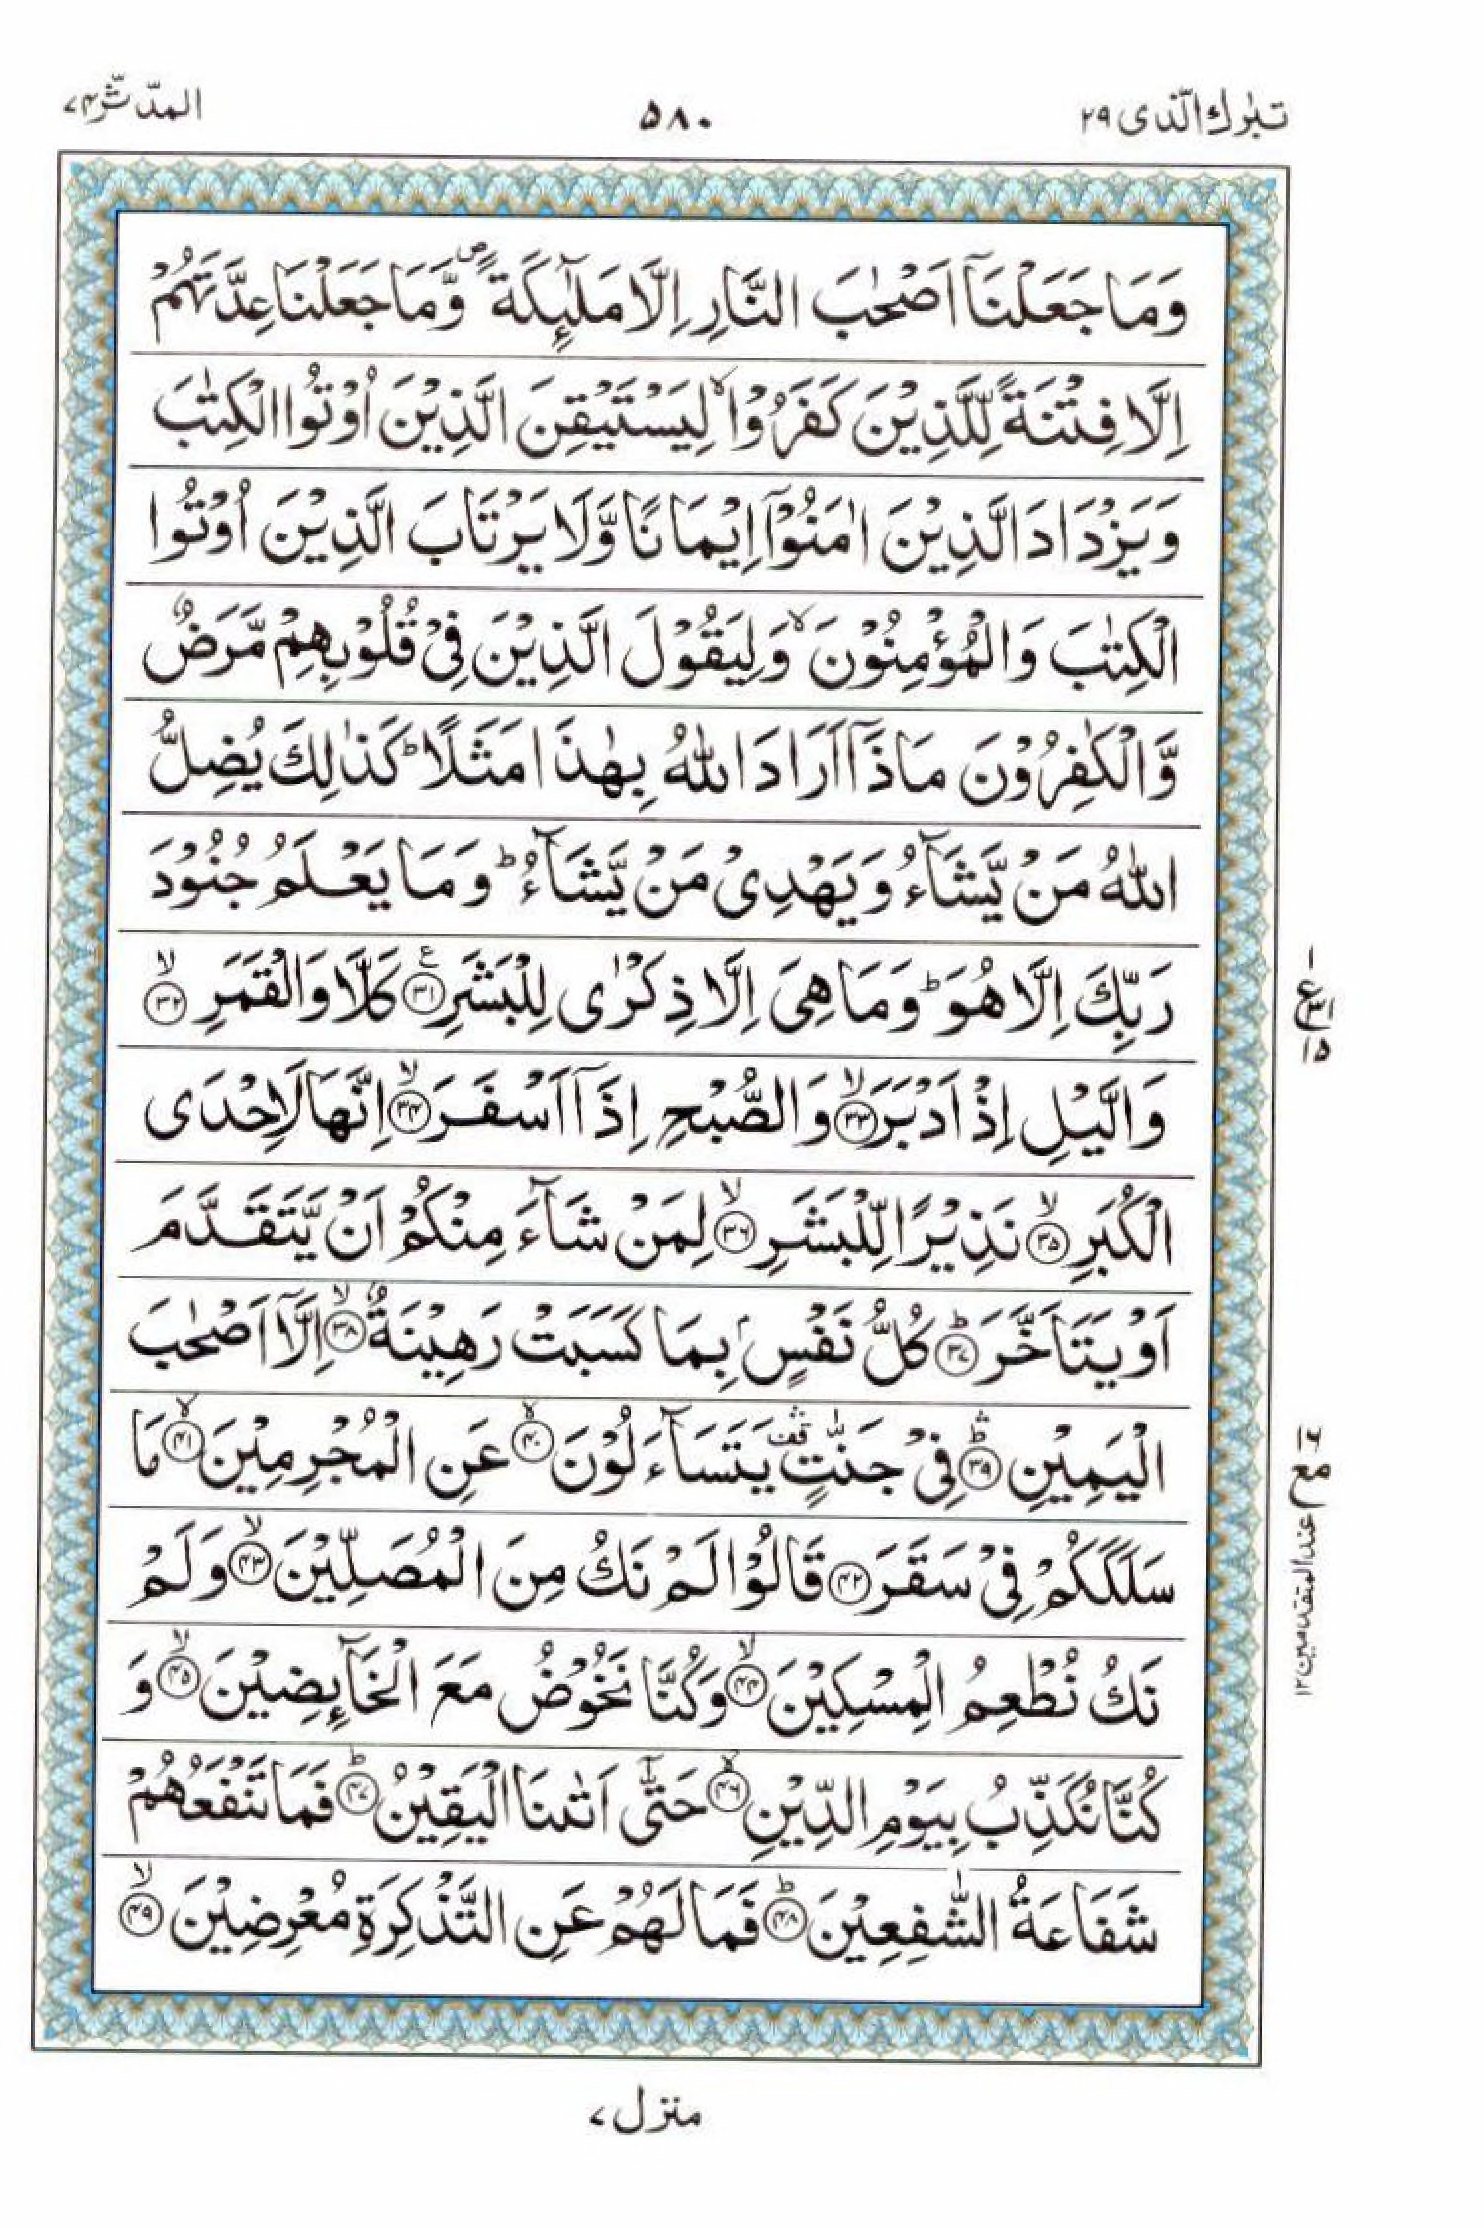 تبٰرك الّذى ٢٩
٥٨٠
المدّثّر ٧٤
وَمَا جَعَلْنَاۤ اَصْحٰبَ النَّارِ اِلَّا مَلٰٓئِكَةً ۪ وَّمَا جَعَلْنَا عِدَّتَهُمْ
اِلَّا فِتْنَةً لِّلَّذِيْنَ كَفَرُوْا ۙ لِيَسْتَيْقِنَ الَّذِيْنَ اُوْتُوا الْكِتٰبَ
وَيَزْدَادَ الَّذِيْنَ اٰمَنُوْۤا اِيْمَانًا وَّلَا يَرْتَابَ الَّذِيْنَ اُوْتُوا
الْكِتٰبَ وَالْمُؤْمِنُوْنَ ۙ وَلِيَقُوْلَ الَّذِيْنَ فِىْ قُلُوْبِهِمْ مَّرَضٌ
وَّالْكٰفِرُوْنَ مَاذَاۤ اَرَادَ اللّٰهُ بِهٰذَا مَثَلًا ؕ كَذٰلِكَ يُضِلُّ
اللّٰهُ مَنْ يَّشَآءُ وَيَهْدِىْ مَنْ يَّشَآءُ ؕ وَمَا يَعْلَمُ جُنُوْدَ
رَبِّكَ اِلَّا هُوَ ؕ وَمَا هِىَ اِلَّا ذِكْرٰى لِلْبَشَرِ ﴿۳۱﴾ ع كَلَّا وَالْقَمَرِ ﴿۳۲﴾ ۙ
وَالَّيْلِ اِذْ اَدْبَرَ ﴿۳۳﴾ ۙ وَالصُّبْحِ اِذَاۤ اَسْفَرَ ﴿۳۴﴾ ۙ اِنَّهَا لَاِحْدَى
الْكُبَرِ ﴿۳۵﴾ ۙ نَذِيْرًا لِّلْبَشَرِ ﴿۳۶﴾ ۙ لِمَنْ شَآءَ مِنْكُمْ اَنْ يَّتَقَدَّمَ
اَوْ يَتَاَخَّرَ ﴿۳۷﴾ ؕ كُلُّ نَفْسٍۭ بِمَا كَسَبَتْ رَهِيْنَةٌ ﴿۳۸﴾ ۙ اِلَّاۤ اَصْحٰبَ
الْيَمِيْنِ ﴿۳۹﴾ ؕۛ فِىْ جَنّٰتٍ ۛ قف يَتَسَآءَلُوْنَ ﴿۴۰﴾ ۙ عَنِ الْمُجْرِمِيْنَ ﴿۴۱﴾ ۙ مَا
سَلَكَكُمْ فِىْ سَقَرَ ﴿۴۲﴾ قَالُوْا لَمْ نَكُ مِنَ الْمُصَلِّيْنَ ﴿۴۳﴾ ۙ وَلَمْ
نَكُ نُطْعِمُ الْمِسْكِيْنَ ﴿۴۴﴾ ۙ وَكُنَّا نَخُوْضُ مَعَ الْخَآئِضِيْنَ ﴿۴۵﴾ ۙ وَ
كُنَّا نُكَذِّبُ بِيَوْمِ الدِّيْنِ ﴿۴۶﴾ ۙ حَتّٰٓى اَتٰىنَا الْيَقِيْنُ ﴿۴۷﴾ ؕ فَمَا تَنْفَعُهُمْ
شَفَاعَةُ الشّٰفِعِيْنَ ﴿۴۸﴾ ؕ فَمَا لَهُمْ عَنِ التَّذْكِرَةِ مُعْرِضِيْنَ ﴿۴۹﴾ ۙ
ع
١٥
مع عند المتقدمين ١٢
منزل ٧